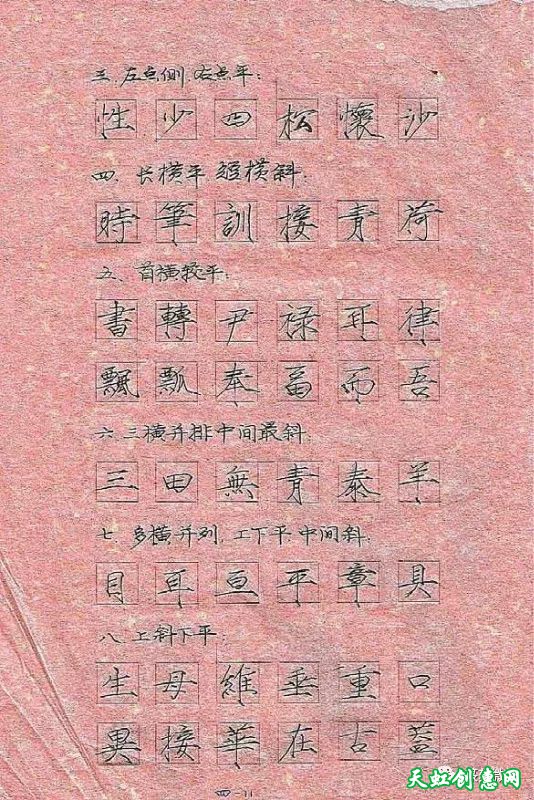 三、左点侧右点平:
性少四松懷沙
四、长横平短横斜:
時筆訓接青荷
五、首横较平:
書轉尹祿耳律
飄瓢奉畐而吾
六、三横并排中间最斜:
三田無青泰羊
七、多横并列上下平中间斜:
目耳亘平章具
八、上斜下平:
生母維垂重口
異接華在古蓋
四-11
天虹创意网